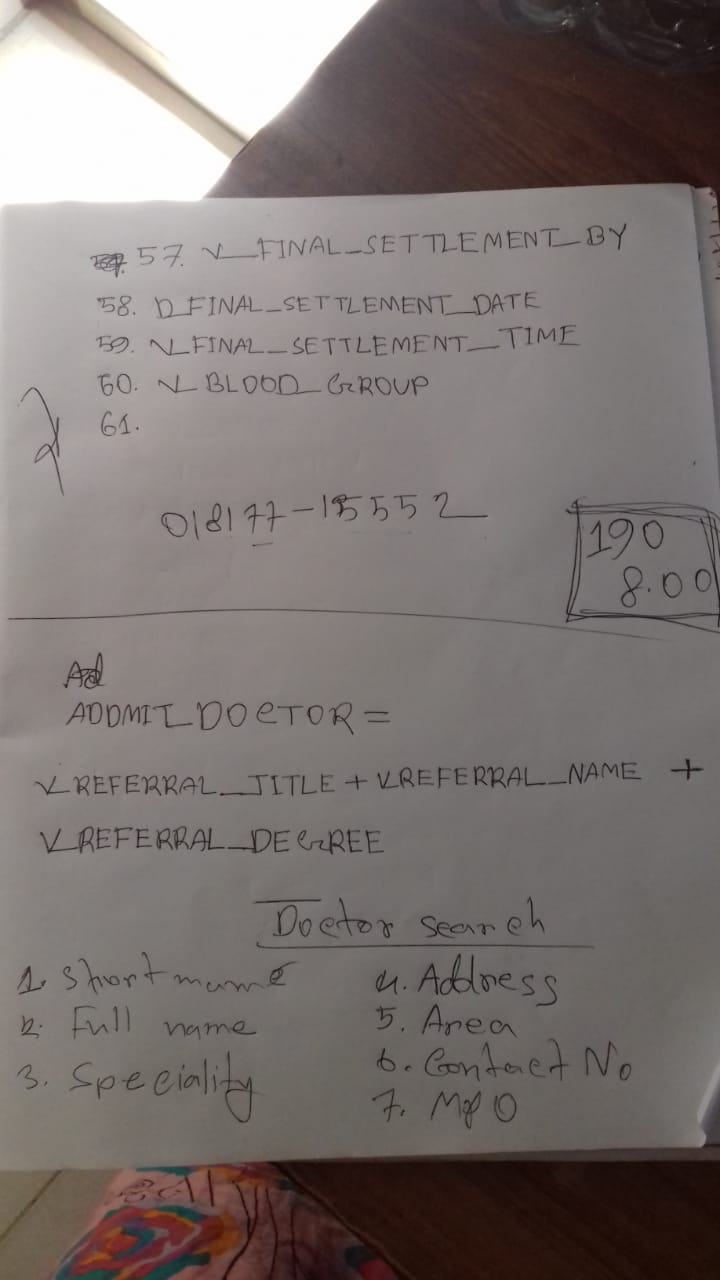 57. V_FINAL_SETTLEMENT_BY
58. D_FINAL_SETTLEMENT_DATE
59. V_FINAL_SETTLEMENT_TIME
60. V_BLOOD_GROUP
61.
018177-15552
190
8.00
Ad
ADDMIT_DOCTOR =
V_REFERRAL_TITLE + V_REFERRAL_NAME +
V_REFERRAL_DEGREE
Doctor search
1. Short name
2. Full name
3. Speciality
4. Address
5. Area
6. Contact No
7. MPO